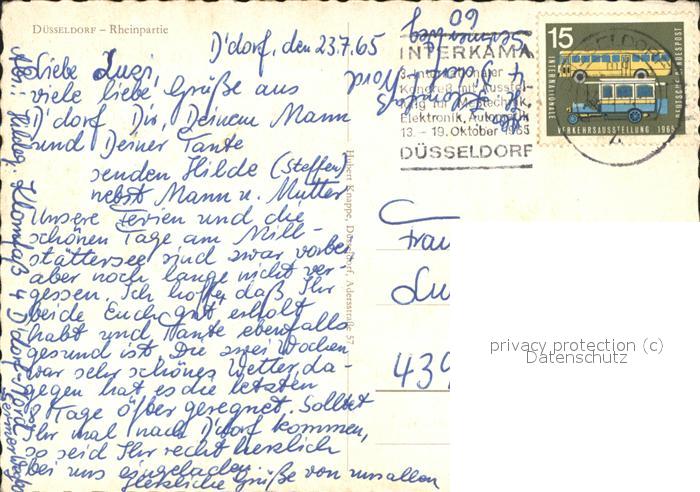 DÜSSELDORF – Rheinpartie
D'dorf, den 23.7.65
Liebe Luzi,
viele liebe Grüße aus
D'dorf Dir, Deinem Mann
und Deiner Tante
senden Hilde (Steffen)
nebst Mann u. Mutter
Unsere Ferien und die
schönen Tage am Mill-
stättersee sind zwar vorbei
aber noch lange nicht ver-
gessen. Ich hoffe, daß Ihr
beide Euch gut erholt
habt und Tante ebenfalls
gesund ist. Die zwei Wochen
war sehr schönes Wetter, da-
gegen hat es die letzten
8 Tage öfter geregnet. Solltet
Ihr mal nach D'dorf kommen,
so seid Ihr recht herzlich
bei uns eingeladen.
Herzliche Grüße von uns allen
4 D'dorf-Nord
Hubert Knappe, Düsseldorf, Adersstraße 57
60
4 D'dorf-Nord
INTERKAMA
3. Internationaler
Kongreß mit Ausstel-
lung für Meßtechnik,
Elektronik, Automatik
13. – 19. Oktober 1965
DÜSSELDORF
15
DEUTSCHE BUNDESPOST
INTERNATIONALE
VERKEHRSAUSSTELLUNG 1965
Frau
Lu
439
privacy protection (c)
Datenschutz